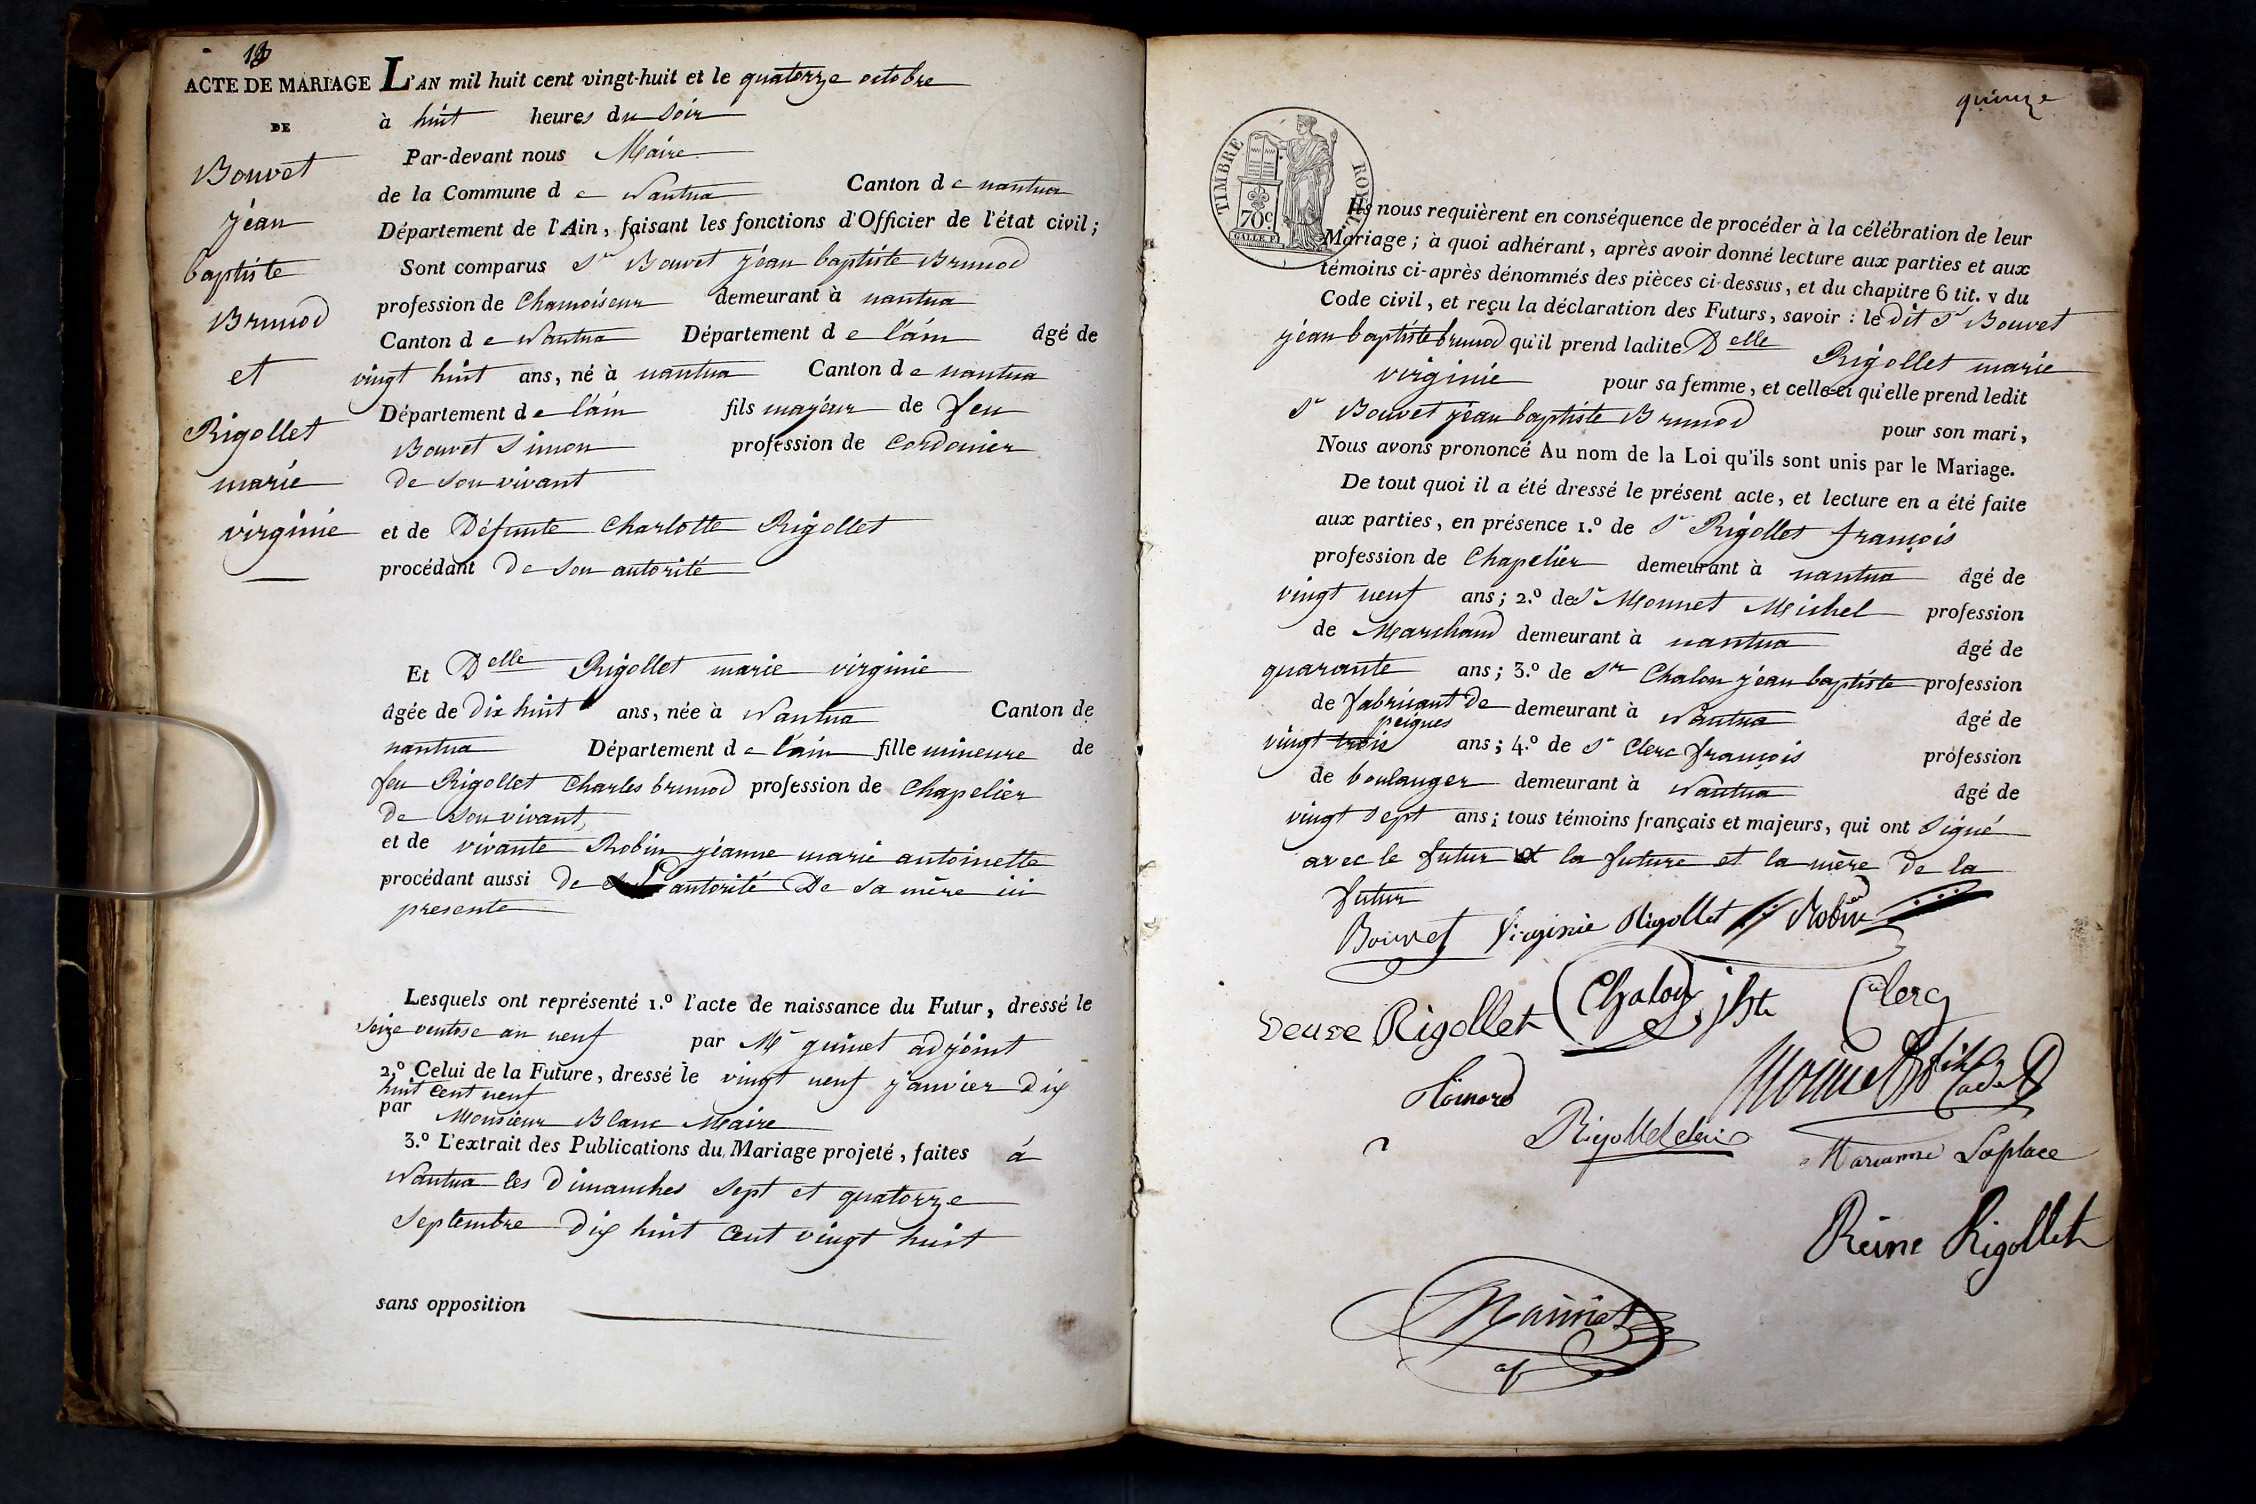 ACTE DE MARIAGE
DE
Bouvet
jéan
baptiste
Brunod
et
Rigollet
marie
virginie
L'AN mil huit cent vingt-huit et le quatorze octobre
à huit heures du soir
Par-devant nous Maire
de la Commune de Nantua Canton de nantua
Département de l'Ain, faisant les fonctions d'Officier de l'état civil;
Sont comparus Sr Bouvet jéan baptiste Brunod
profession de Chamoiseur demeurant à nantua
Canton de Nantua Département de l'ain âgé de
vingt huit ans, né à nantua Canton de nantua
Département de l'ain fils majeur de feu
Bouvet Simon profession de Cordonier
de son vivant
et de Défunte Charlotte Rigollet
procédant de son autorité
Et Delle Rigollet marie virginie
âgée de dix huit ans, née à Nantua Canton de
nantua Département de l'ain fille mineure de
feu Rigollet Charles brunod profession de Chapelier
de son vivant,
et de vivante Robin jéanne marie antoinette
procédant aussi de L'autorité De sa mère ici
presente
Lesquels ont représenté 1.º l'acte de naissance du Futur, dressé le
seize ventose an neuf par Mr guinet adjoint
2.º Celui de la Future, dressé le vingt neuf janvier dix
huit cent neuf
par Monsieur Blanc Maire
3.º L'extrait des Publications du Mariage projeté, faites à
Nantua les Dimanches sept et quatorze
septembre dix huit cent vingt huit
sans opposition
quinze
TIMBRE ROYAL
70c.
Ils nous requièrent en conséquence de procéder à la célébration de leur
Mariage; à quoi adhérant, après avoir donné lecture aux parties et aux
témoins ci-après dénommés des pièces ci-dessus, et du chapitre 6 tit. v du
Code civil, et reçu la déclaration des Futurs, savoir : le dit Sr Bouvet
jéan baptiste brunod qu'il prend ladite Delle Rigollet marie
virginie pour sa femme, et celle-ci qu'elle prend ledit
Sr Bouvet jéan baptiste Brunod pour son mari,
Nous avons prononcé Au nom de la Loi qu'ils sont unis par le Mariage.
De tout quoi il a été dressé le présent acte, et lecture en a été faite
aux parties, en présence 1.º de Sr Rigollet françois
profession de Chapelier demeurant à nantua âgé de
vingt neuf ans; 2.º de Sr Monnet Michel profession
de Marchand demeurant à nantua âgé de
quarante ans; 3.º de Sr Chalon jéan baptiste profession
de fabricant de peignes demeurant à Nantua âgé de
vingt trois ans; 4.º de Sr Clerc françois profession
de boulanger demeurant à Nantua âgé de
vingt sept ans; tous témoins français et majeurs, qui ont signé
avec le futur et la future et la mère de la
futur
Bouvet Virginie Rigollet Robin
veuve Rigollet Chalon jBte Clerc
Monnet
Rigollet
Marianne Laplace
Reine Rigollet